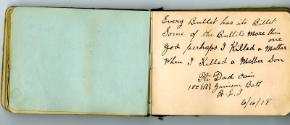 Every Bullet has its Billet
Some of the Bullets more than
one
God perhaps I Killed a Mother
When I Killed a Mother Son
Pte Dack
Garrison Batt
6/4/18